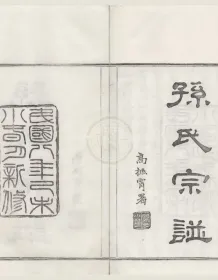 孫氏宗譜
高振霄署
民國八年己未
小春月新修